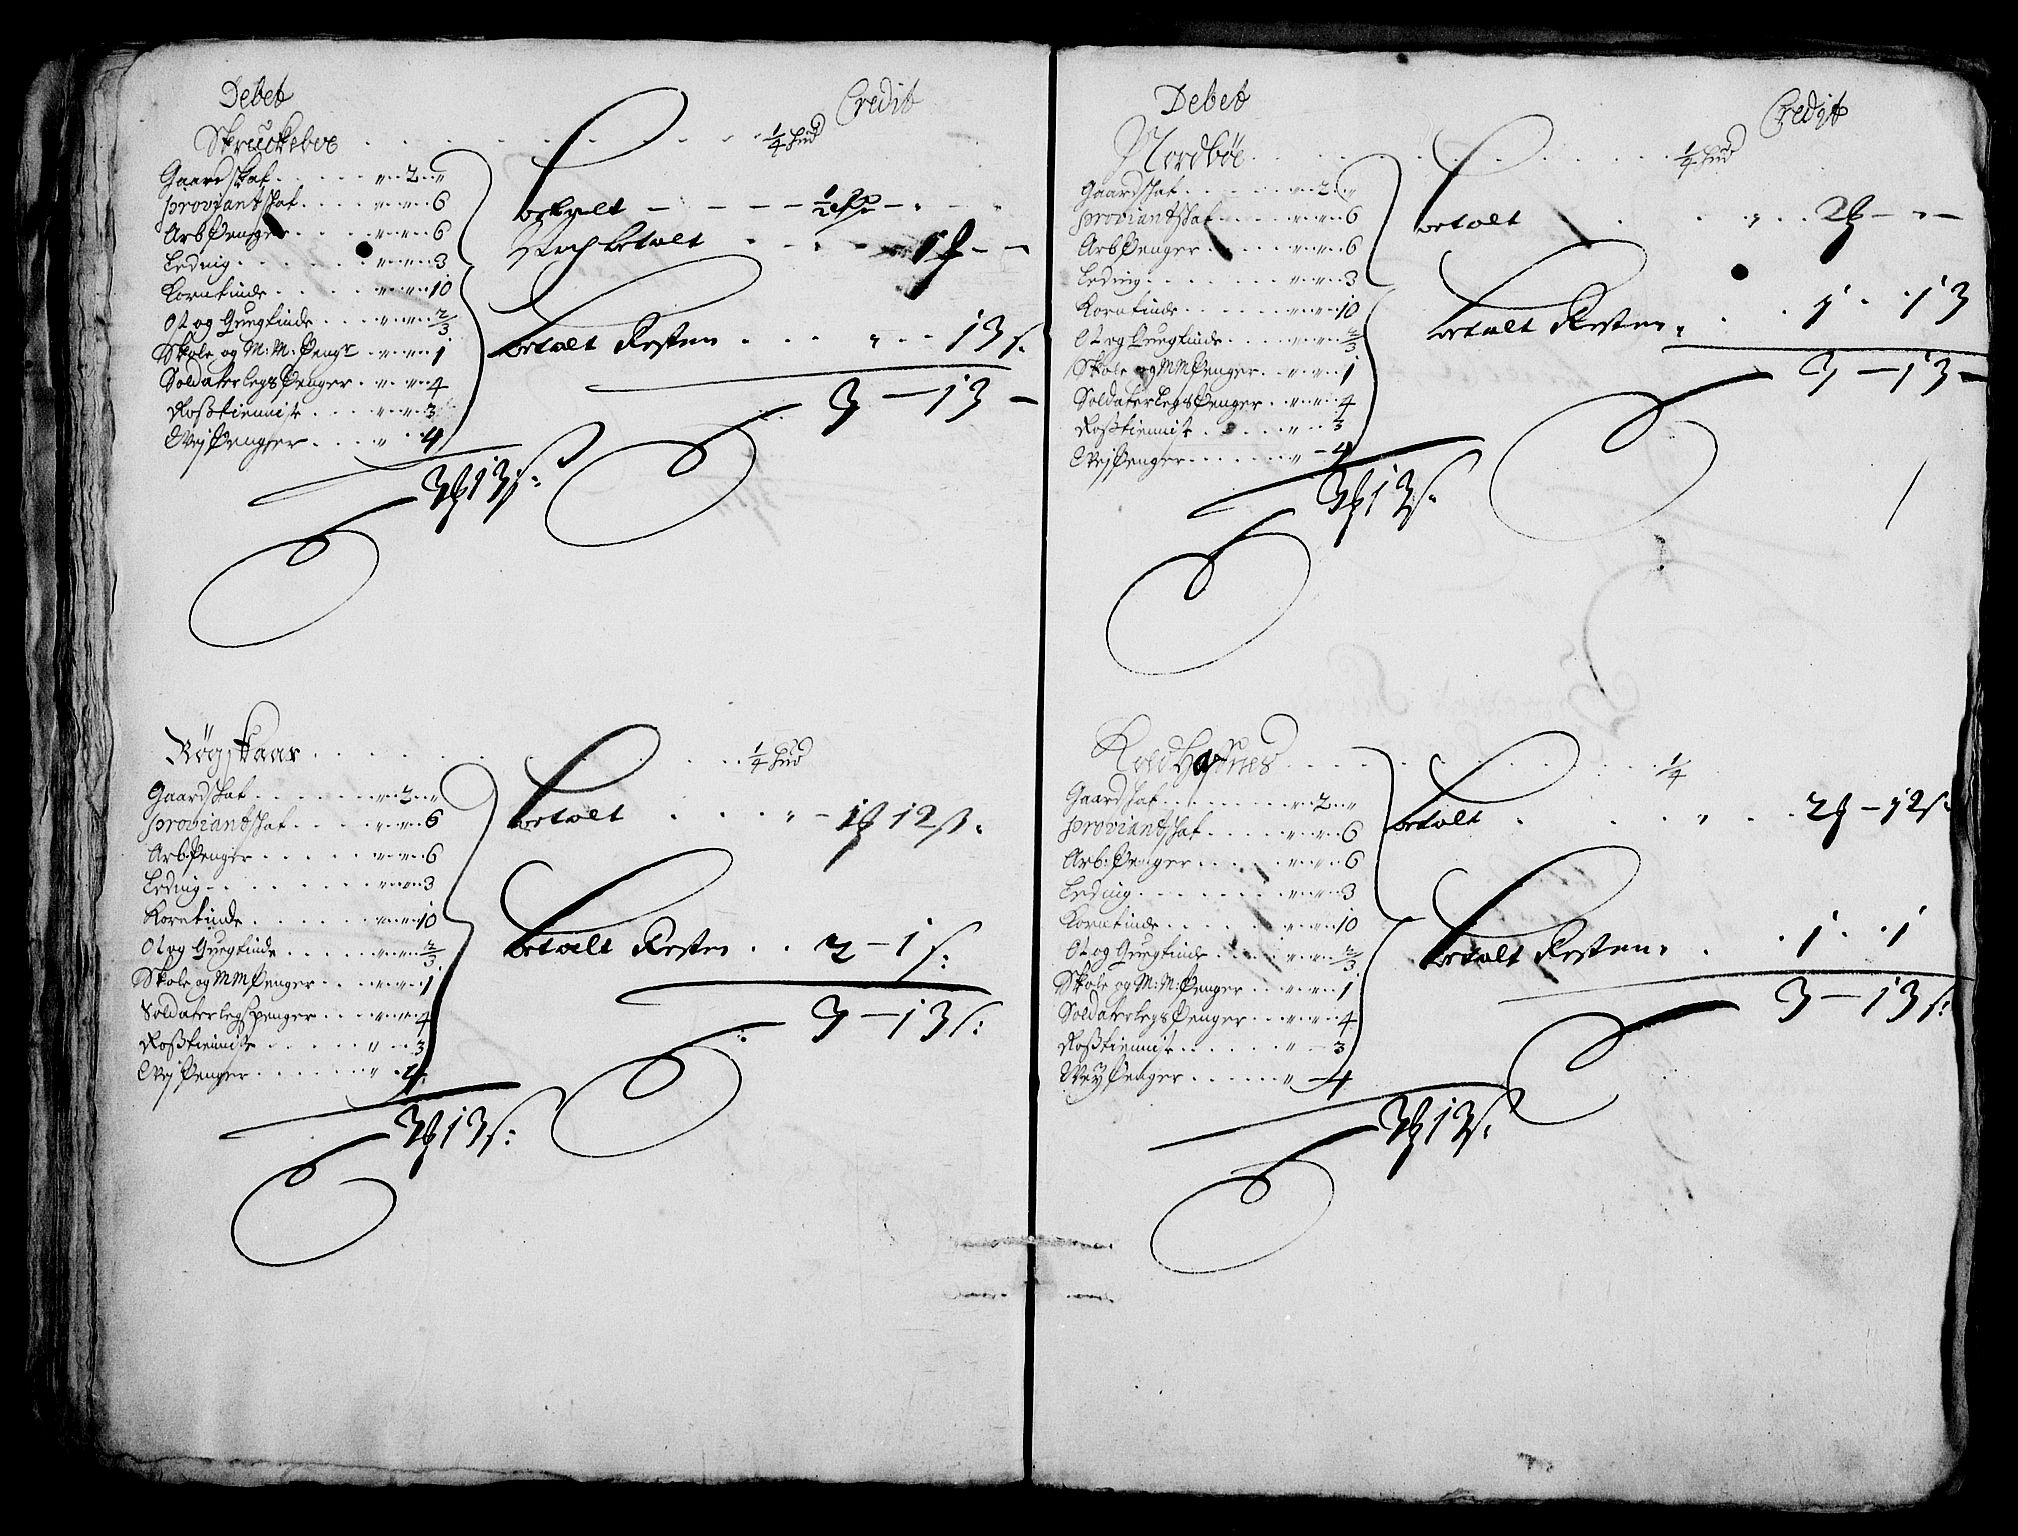 Debet Credit
Skruckeboe ¼ hud
Gaardskat 2
proviantskat 6
Arb Penger 6
Leding 3
Korntinde 10
Ost og Huustinde 2/3
Skole og M: M: Pengr 1
Soldaterlegs Penger 4
Rosstienniste 3
Wej Penger 4
3 13 s:
betalt ½
Noch betalt 1
betalt Resten 13 s:
3 – 13 –
Røgskaar ¼ hud
Gaardskat 2
proviantskat 6
Arb: Penger 6
Leding 3
Korntinde 10
Ost og Huustinde 2/3
Skole og MM Penger 1
Soldaterlegs penger 4
Rosstienniste 3
Wej Penger 4
3 13 s:
betalt 1 12 s:
betalt Resten 2 – 1 s:
3 – 13 s:
Debet Credit
Nordbøe ¼ hud
Gaardskat 2
proviantskat 6
Arb Penger 6
Leding 3
Korntinde 10
Ost og Huustinde 2/3
Skole og MM Penger 1
Soldaterlegs Penger 4
Rosstienniste 3
Wej Penger 4
3 13 s:
betalt 2
betalt Resten 1 13
3 – 13 –
Kold ¼
Gaardskat 2
proviantskat 6
Arb: Penger 6
Leding 3
Korntinde 10
Ost og Huustinde 2/3
Skole og M: M: Penger 1
Soldaterlegs Penger 4
Rosstienniste 3
Wey Penger 4
3 13 s:
betalt 2 – 12 s:
betalt Resten 1 1
3 – 13 s: